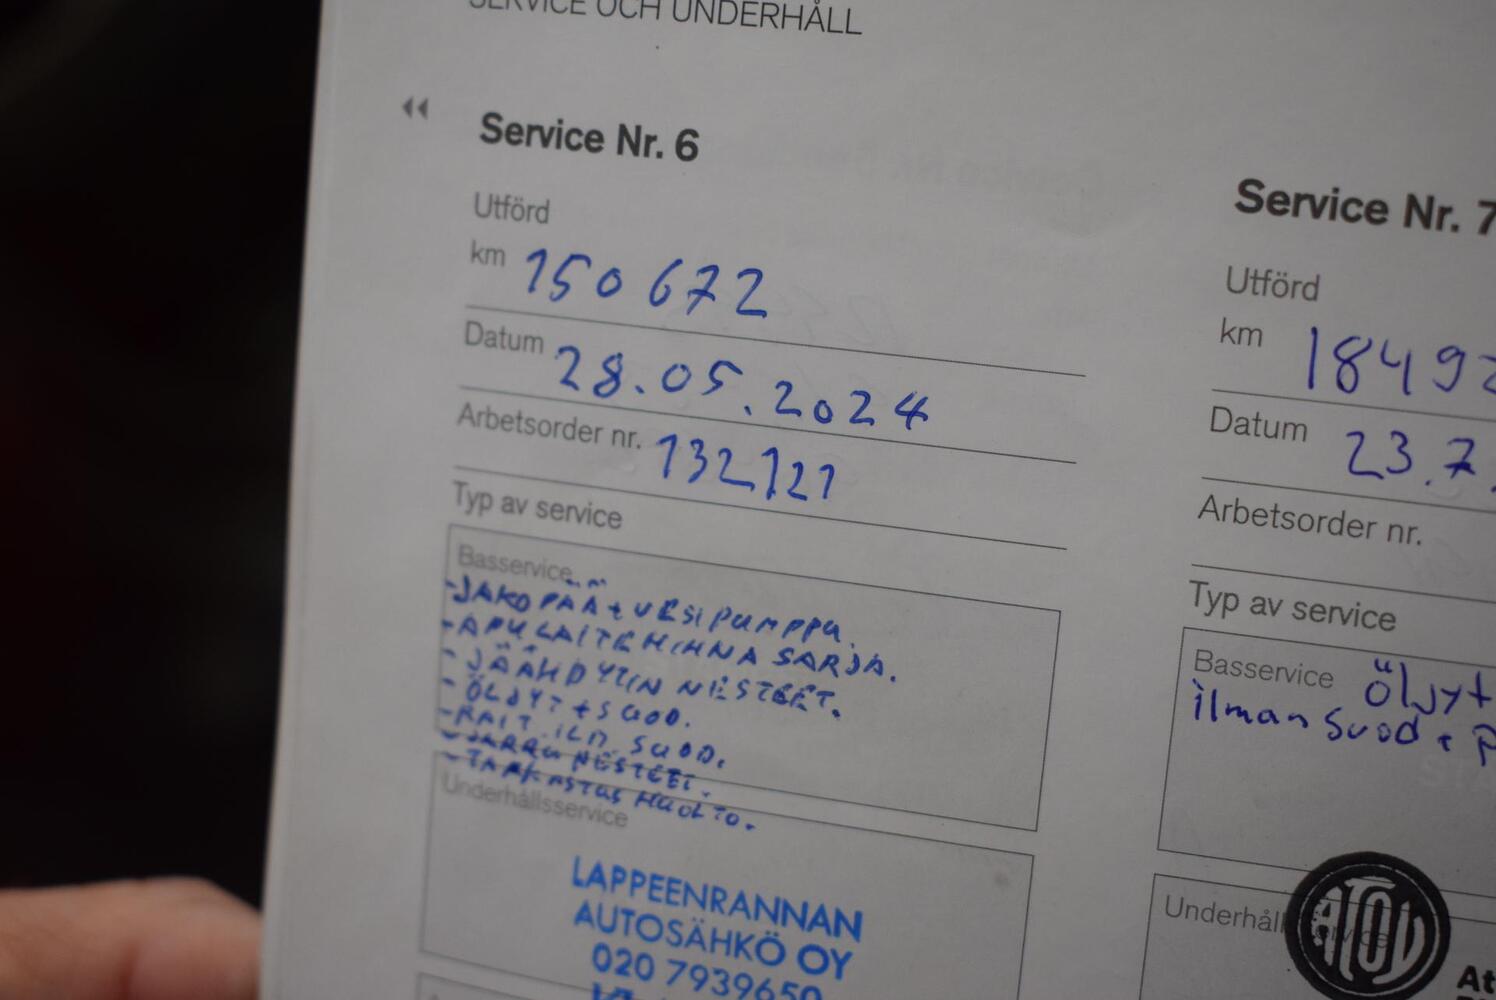 SERVICE OCH UNDERHÅLL
Service Nr. 6
Utförd
km 150 672
Datum 28.05.2024
Arbetsorder nr. 132121
Typ av service
Basservice
-JAKOPÄÄ+VESIPUMPPU.
-APULAITEHIHNA SARJA.
-JÄÄHDYTIN NESTEET.
-ÖLJYT+SUOD.
-RAIT.ILM.SUOD.
-JARRU NESTEET.
-TARKASTUS HUOLTO.
Underhållsservice
LAPPEENRANNAN
AUTOSÄHKÖ OY
020 7939650
Service Nr. 7
Utförd
km 1849
Datum 23.7.
Arbetsorder nr.
Typ av service
Basservice Öljyt
ilman suod +
Underhållsservice
ATOY
At